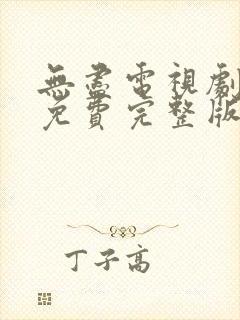 無盡電視劇
免費完整版
丁子高